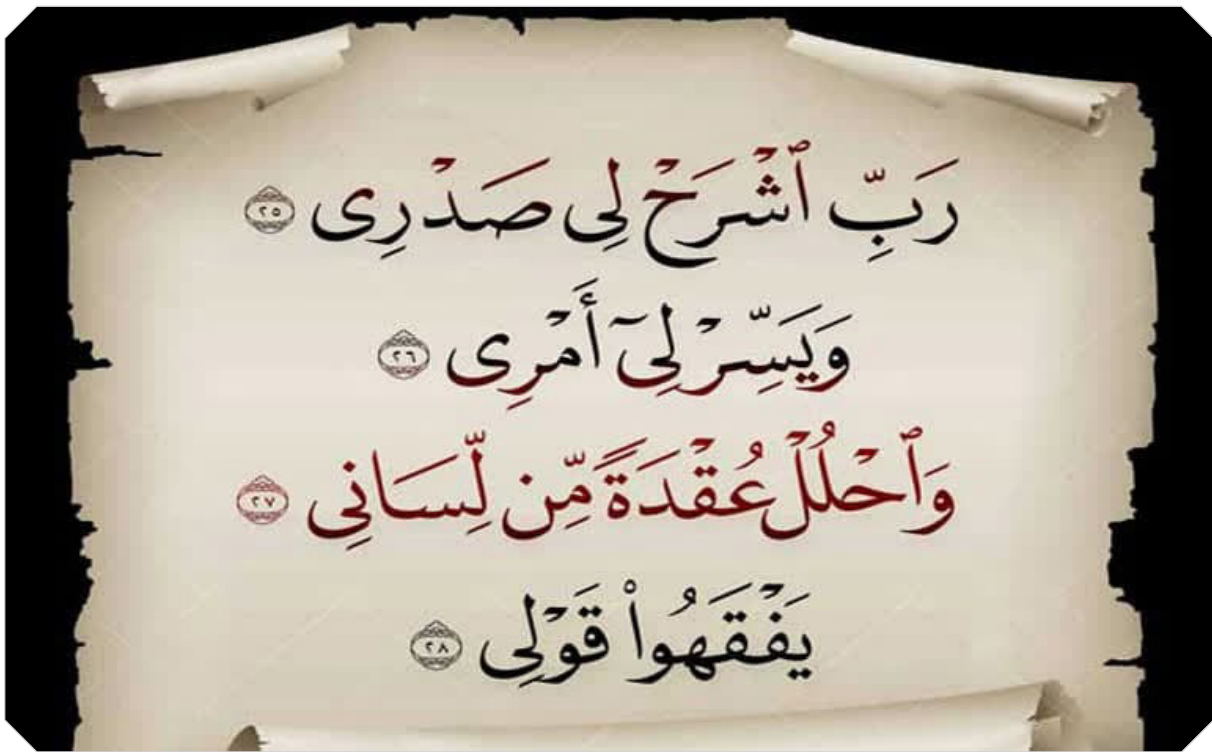 رَبِّ ٱشْرَحْ لِى صَدْرِى ٢٥
وَيَسِّرْ لِىٓ أَمْرِى ٢٦
وَٱحْلُلْ عُقْدَةً مِّن لِّسَانِى ٢٧
يَفْقَهُوا۟ قَوْلِى ٢٨